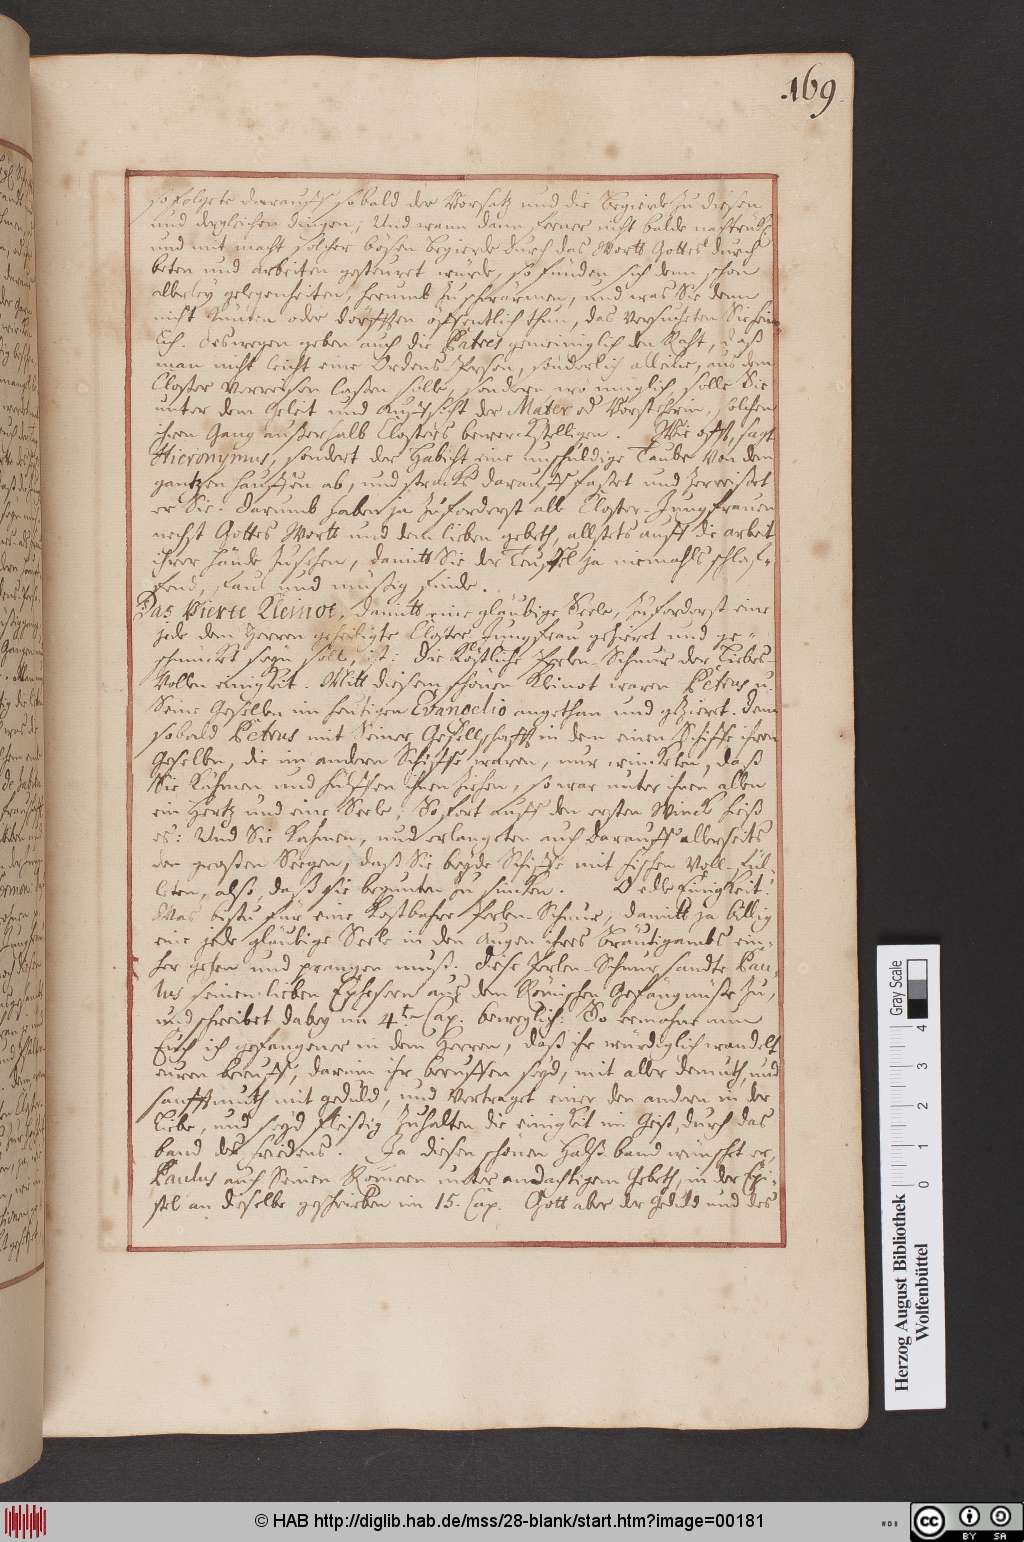 169.
so folgete darauff sobald der Vorsatz und die Begierde zu diesen
und dergleichen dingen, Und wann dann ferner nicht balde nachtrück
und mit macht solcher bösen Begierde durch das Wortt Gottes durch
beten und arbeiten gesteuret würde, so fünden sich denn schon
allerley gelegenheiten, herumb zu schwärmen, und was Sie denn
nicht oder dörfften öffentlich thun, das versuchten Sie heim-
lich. Deswegen geben auch die Patres gemeiniglich den Raht, daß
man nicht leicht eine Ordens-Person, sonderlich alleine, aus dem
Closter verreisen laßen solle, sondern wo müglich, solle Sie
unter dem Geleit und Auffsicht der Mater od Vorsteherin, solchen
ihren Gang außerhalb Closters bewerckstelligen. Wie offt, sagt
Hieronymus, sondert der Habicht eine unschuldige Taube von dem
gantzen hauffen ab, und stracks darauff fastet und zerreißet
er Sie. Darumb haben ja zuforderst alle Closter-Jungfrauen
nechst Gottes Wortt und dem lieben gebeth, allstets auff die arbeit
ihrer Hände zusehen, damitt Sie der Teuffel ja niemahls schlaf-
fend, faul und müßig finde.
Das Vierte Kleinot, damitt eine gläubige Seele, zuforderst eine
jede dem Herren geheiligte Closter Jungfrau gezieret und ge-
schmückt seyn soll, ist: Die Köstliche Perlen-Schnur der Liebes-
vollen einigkeit. Mitt diesem schönen Kleinot waren Petrus u.
Seine Gesellen im heutigen Evangelio angethan und gezieret. Denn
sobald Petrus mit Seiner Gesellschafft in dem einen Schiffe ihren
Gesellen, die im andern Schiffe waren, nur winckten, daß
Sie Kähmen und hülffen ihnen ziehen, so war unter ihnen allen
ein Hertz und eine Seele, Sofort auff den ersten Winck hieß
es: Und Sie kahmen, und erlangeten auch darauff allerseits
den großen Seegen, daß Sie beyde Schiffe mit Fischen voll-fül-
leten, also, daß sie begunten zu sincken. O edle Einigkeit!
Was bistu für eine Kostbahre Perlen-Schnur, damitt ja billig
eine jede gläubige Seele in den Augen ihres Bräutigambs ein-
her gehen und prangen muß. Diese Perlen-Schnur sandte Pau-
lus seinen lieben Ephesern aus dem Römischen Gefängnüße zu,
und schreibet dabey im 4ten Cap. beweglich: So ermahne nun
Euch ich gefangener in dem Herren, daß ihr würdiglich wandelt
euren beruff, darinn ihr beruffen seyd, mit aller demuth, und
sanfftmuth mit gedüld, und vertraget einer den andern in der
Liebe, und seyd fleißig zuhalten die einigkeit im Geist, durch das
band des friedens. Ja diesen schönen Halß-band wünschet er,
Paulus auch Seinen Römern unter andächtigem Gebeth, in der Epi-
stel an dieselbe geschrieben im 15. Cap. Gott aber der Gedüld und des
Herzog August Bibliothek
Wolfenbüttel
Gray Scale
0 1 2 3 4
© HAB http://diglib.hab.de/mss/28-blank/start.htm?image=00181
cc BY SA